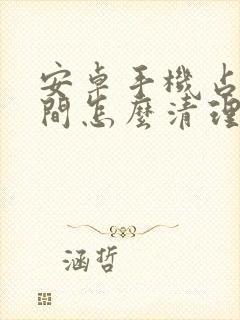 安卓手機占
間怎麼清理
涵哲